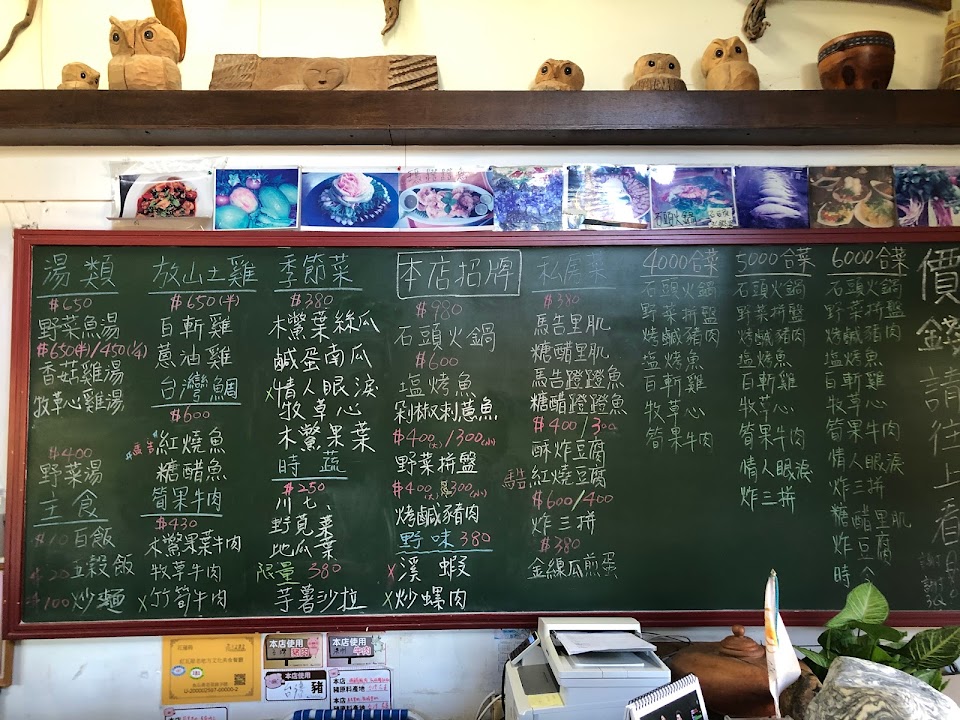 湯類
$650
野菜魚湯
$650(半)/450(¼)
香菇雞湯
牧草心雞湯
$400
野菜湯
主食
$10白飯
$20五穀飯
$100炒麵
放山土雞
$650(半)
白斬雞
蔥油雞
台灣鯛
$600
紅燒魚
糖醋魚
筍果牛肉
$430
木虌果葉牛肉
牧草牛肉
X竹筍牛肉
季節菜
$380
木虌葉絲瓜
鹹蛋南瓜
情人眼淚
牧草心
木虌果葉
時蔬
$250
川七、
野莧菜
地瓜葉
限量 380
芋薯沙拉
本店招牌
$980
石頭火鍋
$600
塩烤魚
剁椒刺蔥魚
$400(大)/300(小)
野菜拼盤
$400(大)300(小)
烤鹹豬肉
野味380
X溪蝦
X炒螺肉
私房菜
$330
馬告里肌
糖醋里肌
馬告蹬蹬魚
糖醋蹬蹬魚
$400/300
酥炸豆腐
馬告紅燒豆腐
$600/400
炸三拼
$380
金線瓜煎蛋
4000合菜
石頭火鍋
野菜拼盤
烤鹹豬肉
塩烤魚
白斬雞
牧草心
筍果牛肉
5000合菜
石頭火鍋
野菜拼盤
烤鹹豬肉
塩烤魚
白斬雞
牧草心
筍果牛肉
情人眼淚
炸三拼
6000合菜
石頭火鍋
野菜拼盤
烤鹹豬肉
塩烤魚
白斬雞
牧草心
筍果牛肉
情人眼淚
炸三拼
糖醋里肌
炸豆腐
時
價錢請往上看
謝謝
本店使用
本店使用
牛肉
豬
本店
豬原料產地
本店
豬原料產地